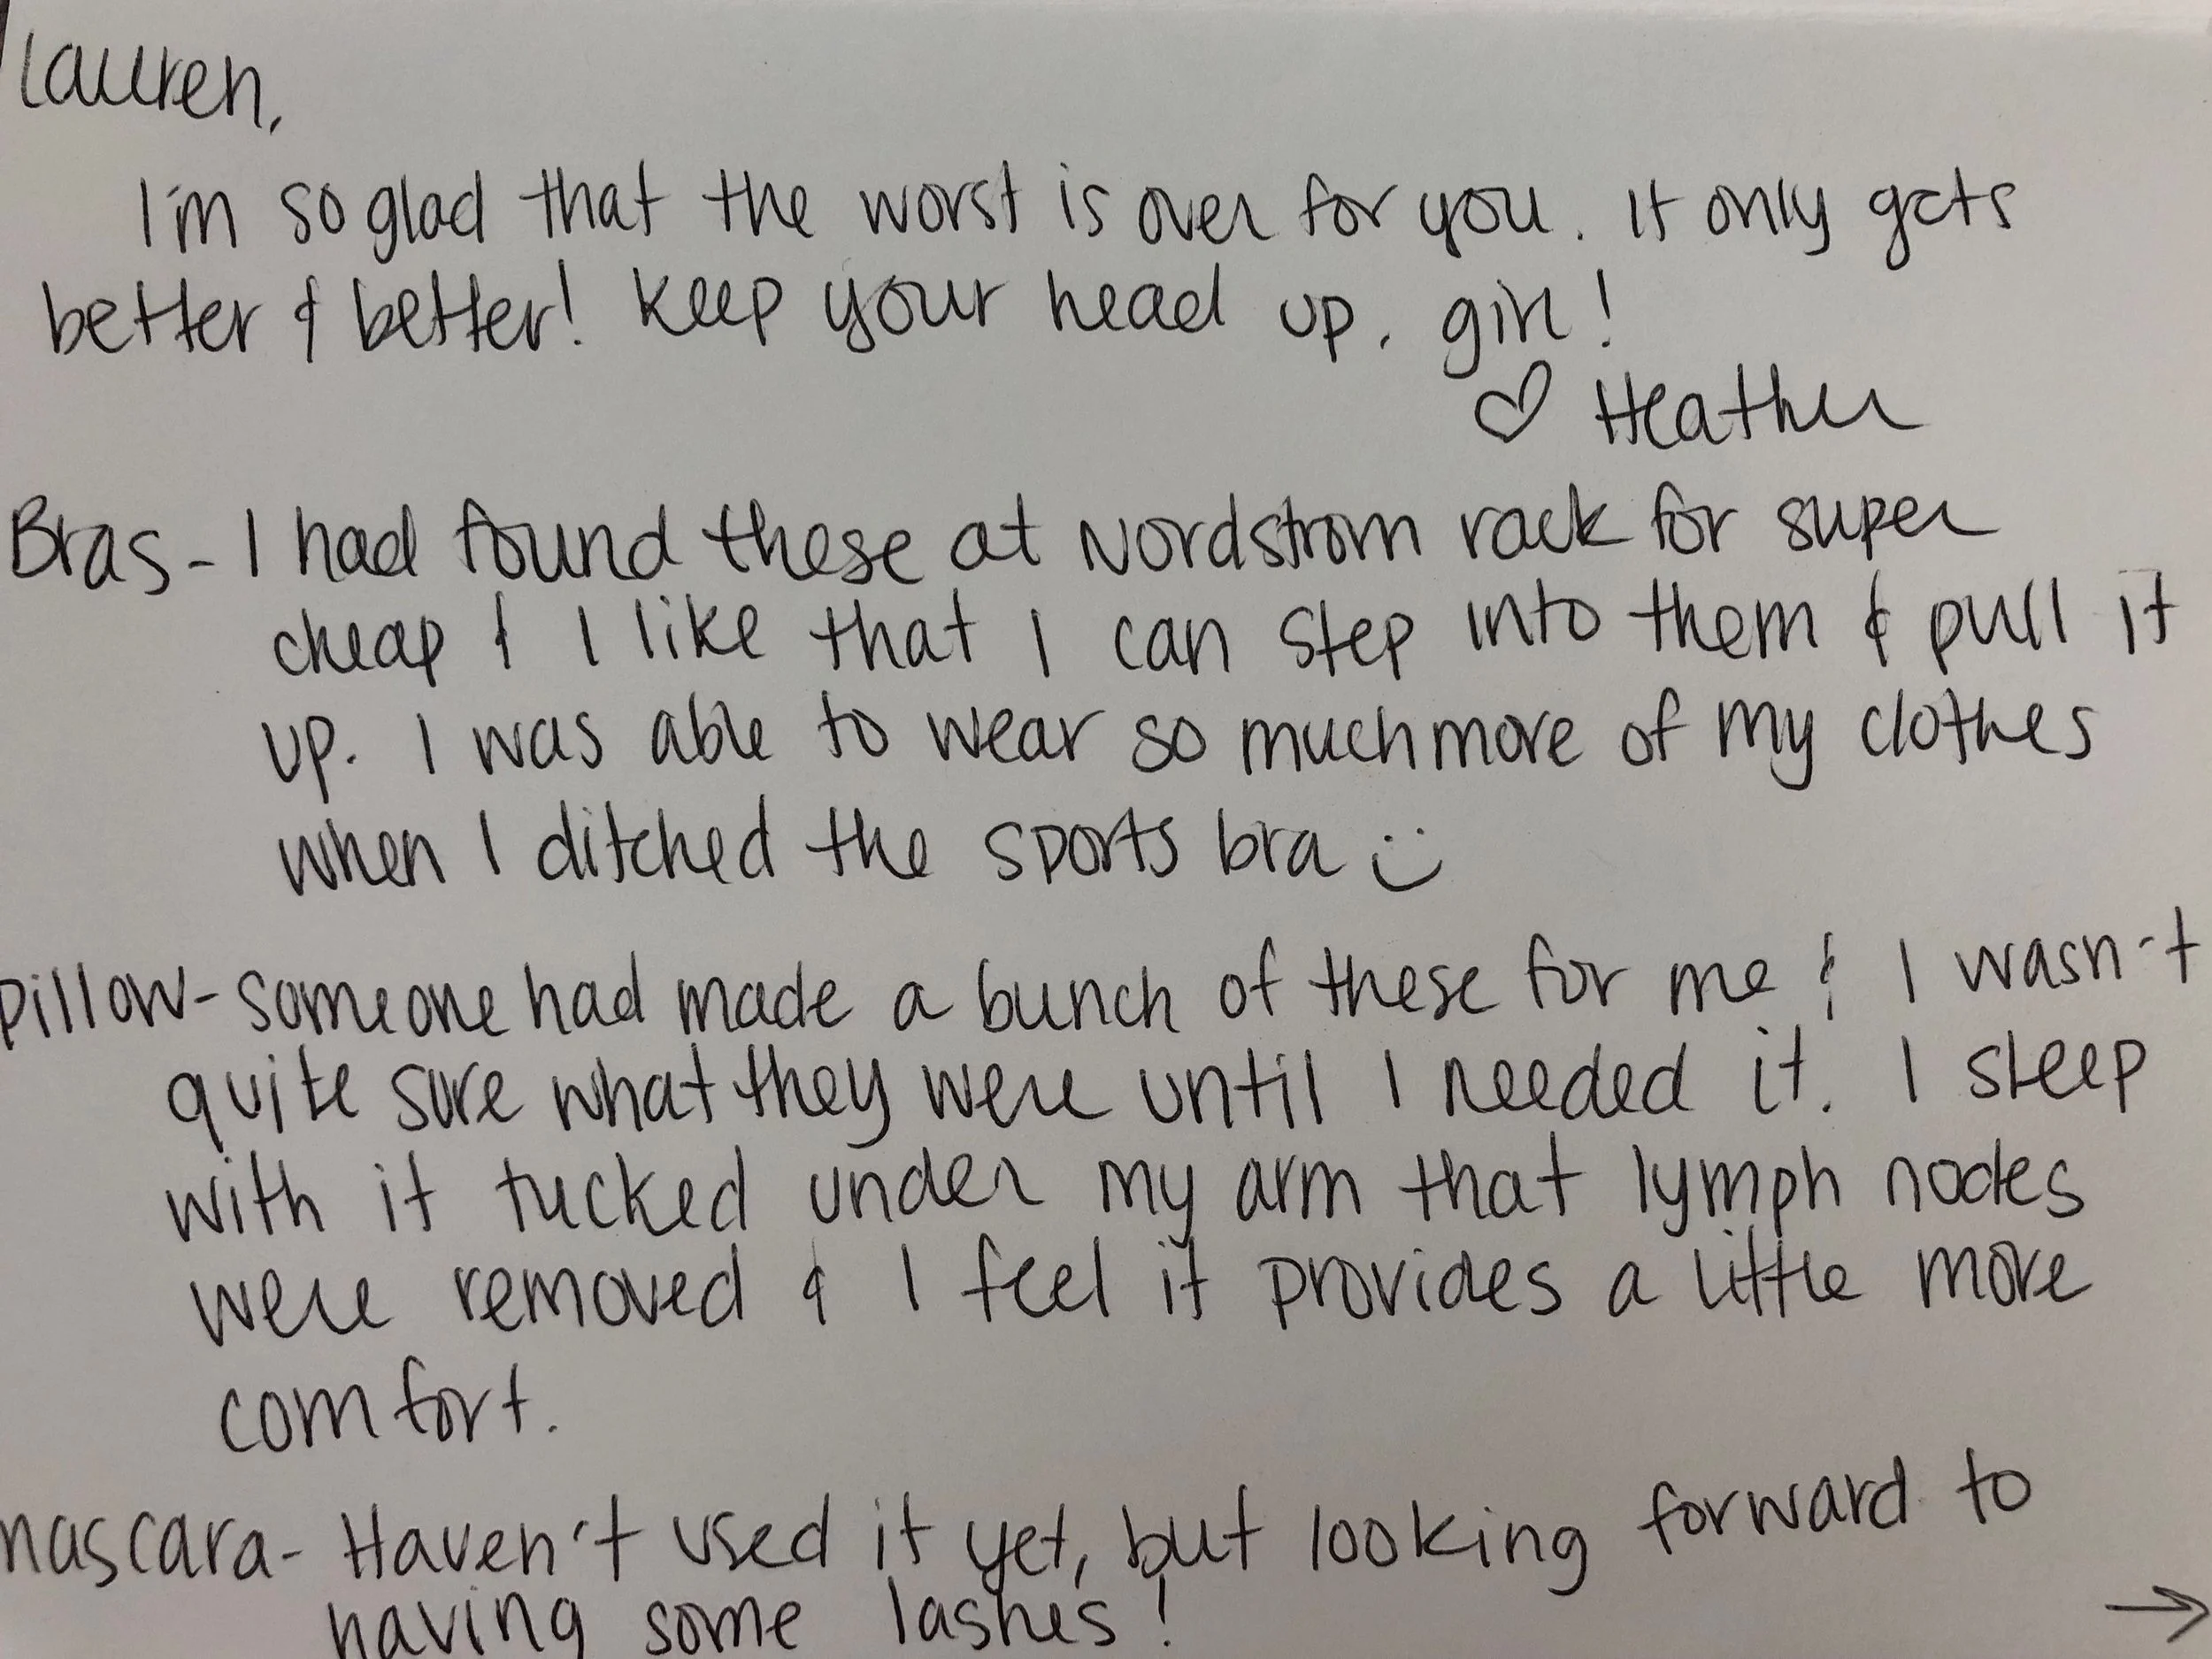 Lauren,
I'm so glad that the worst is over for you. It only gets
better & better! Keep your head up, girl!
♡ Heather
Bras - I had found these at Nordstrom rack for super
cheap & I like that I can step into them & pull it
up. I was able to wear so much more of my clothes
when I ditched the sports bra :)
Pillow - someone had made a bunch of these for me & I wasn't
quite sure what they were until I needed it. I sleep
with it tucked under my arm that lymph nodes
were removed & I feel it provides a little more
comfort.
mascara - Haven't used it yet, but looking forward to
having some lashes! →